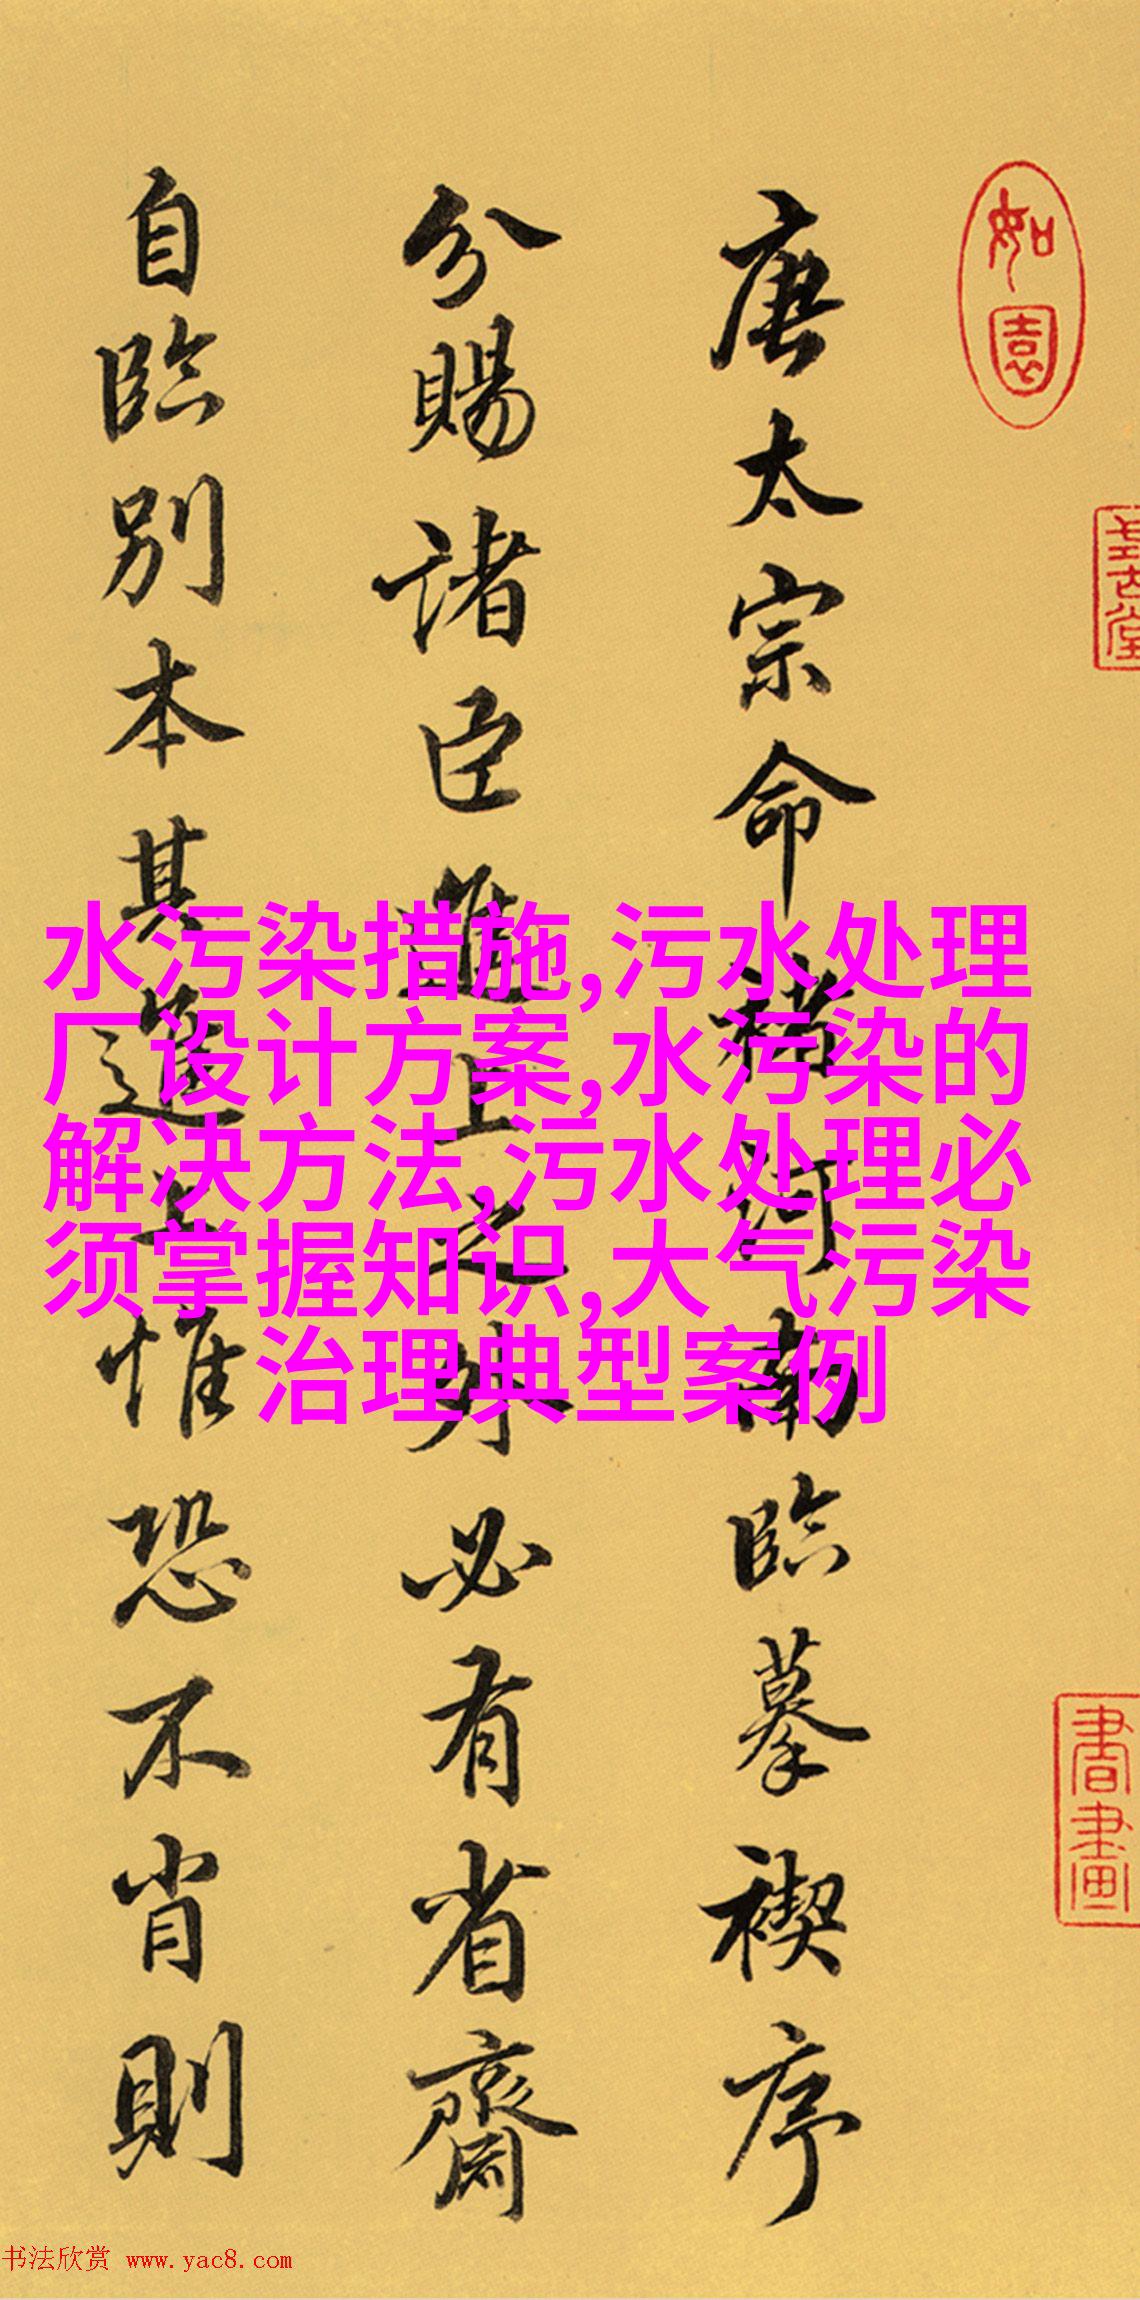 如園
書畫
唐太宗命褚河南臨摹禊序
分賜諸臣進上之外必有省齋
自臨別本其進上惟恐不肖則
水污染措施,污水处理
厂设计方案,水污染的
解决方法,污水处理必
须掌握知识,大气污染
治理典型案例
书法欣赏 www.yac8.com